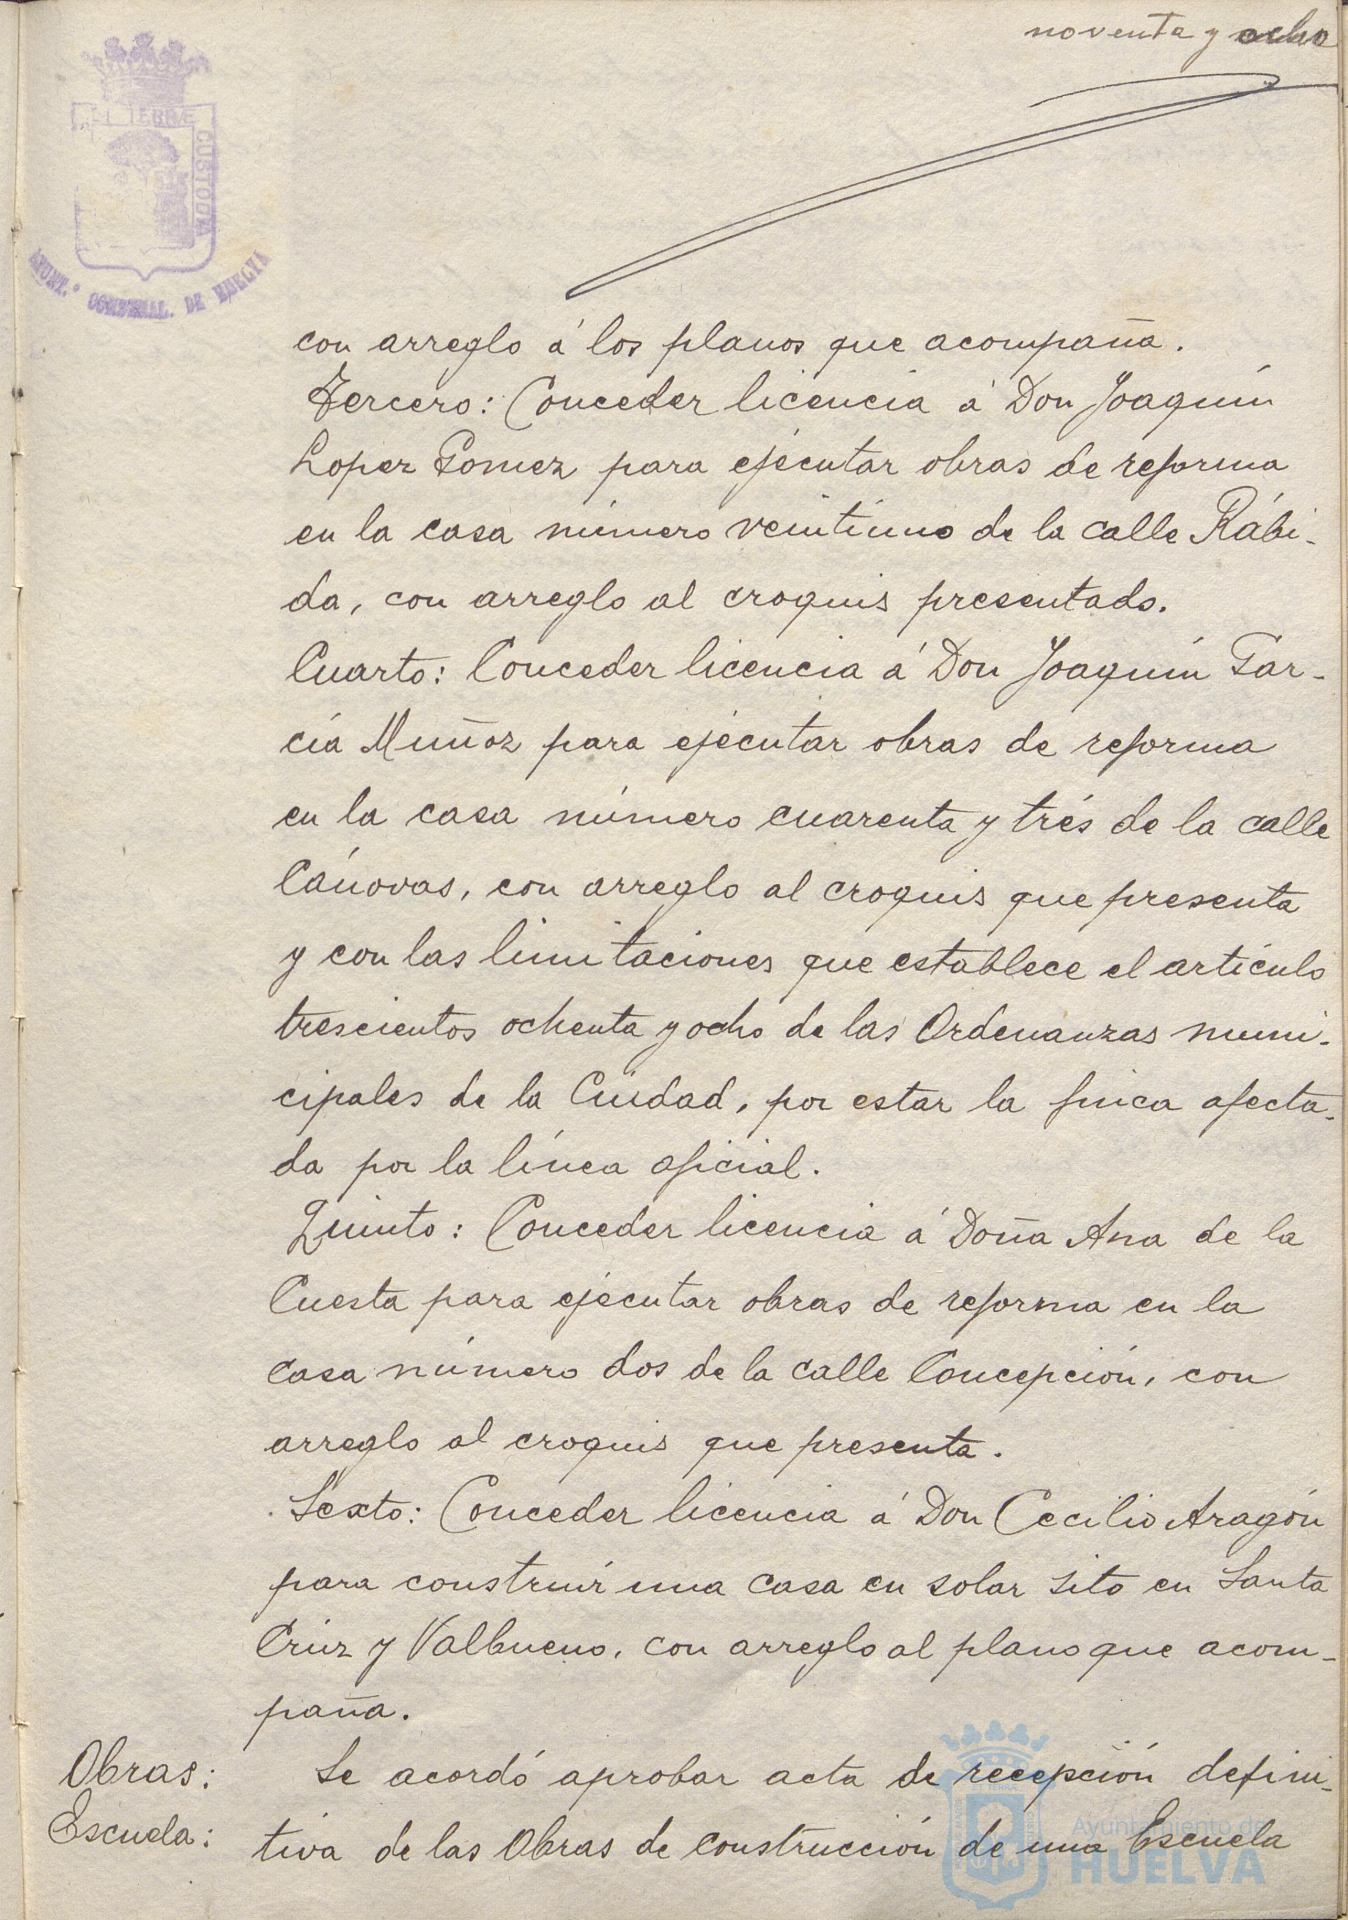 noventa y ocho
TERRÆ
CUSTODIA
AYUNT.º CONSTNAL. DE HUELVA
con arreglo á los planos que acompaña.
Tercero: Conceder licencia á Don Joaquín
Lopez Gomez para ejécutar obras de reforma
en la casa número veintiuno de la calle Rábi-
da, con arreglo al croquis presentado.
Cuarto: Conceder licencia á Don Joaquín Gar-
cía Muñoz para ejécutar obras de reforma
en la casa número cuarenta y trés de la calle
Cánovas, con arreglo al croquis que presenta
y con las limitaciones que establece el artículo
trescientos ochenta y ocho de las Ordenanzas muni-
cipales de la Ciudad, por estar la finca afecta-
da por la línea oficial.
Quinto: Conceder licencia á Doña Ana de la
Cuesta para ejécutar obras de reforma en la
casa número dos de la calle Concepción, con
arreglo al croquis que presenta.
Sexto: Conceder licencia á Don Cecilio Aragón
para construír una casa en solar sito en Santa
Crúz y Valbueno, con arreglo al plano que acom-
paña.
Obras:
Escuela:
Se acordó aprobar acta de recepción defini-
tiva de las Obras de construcción de una Escuela
Ayuntamiento de
HUELVA